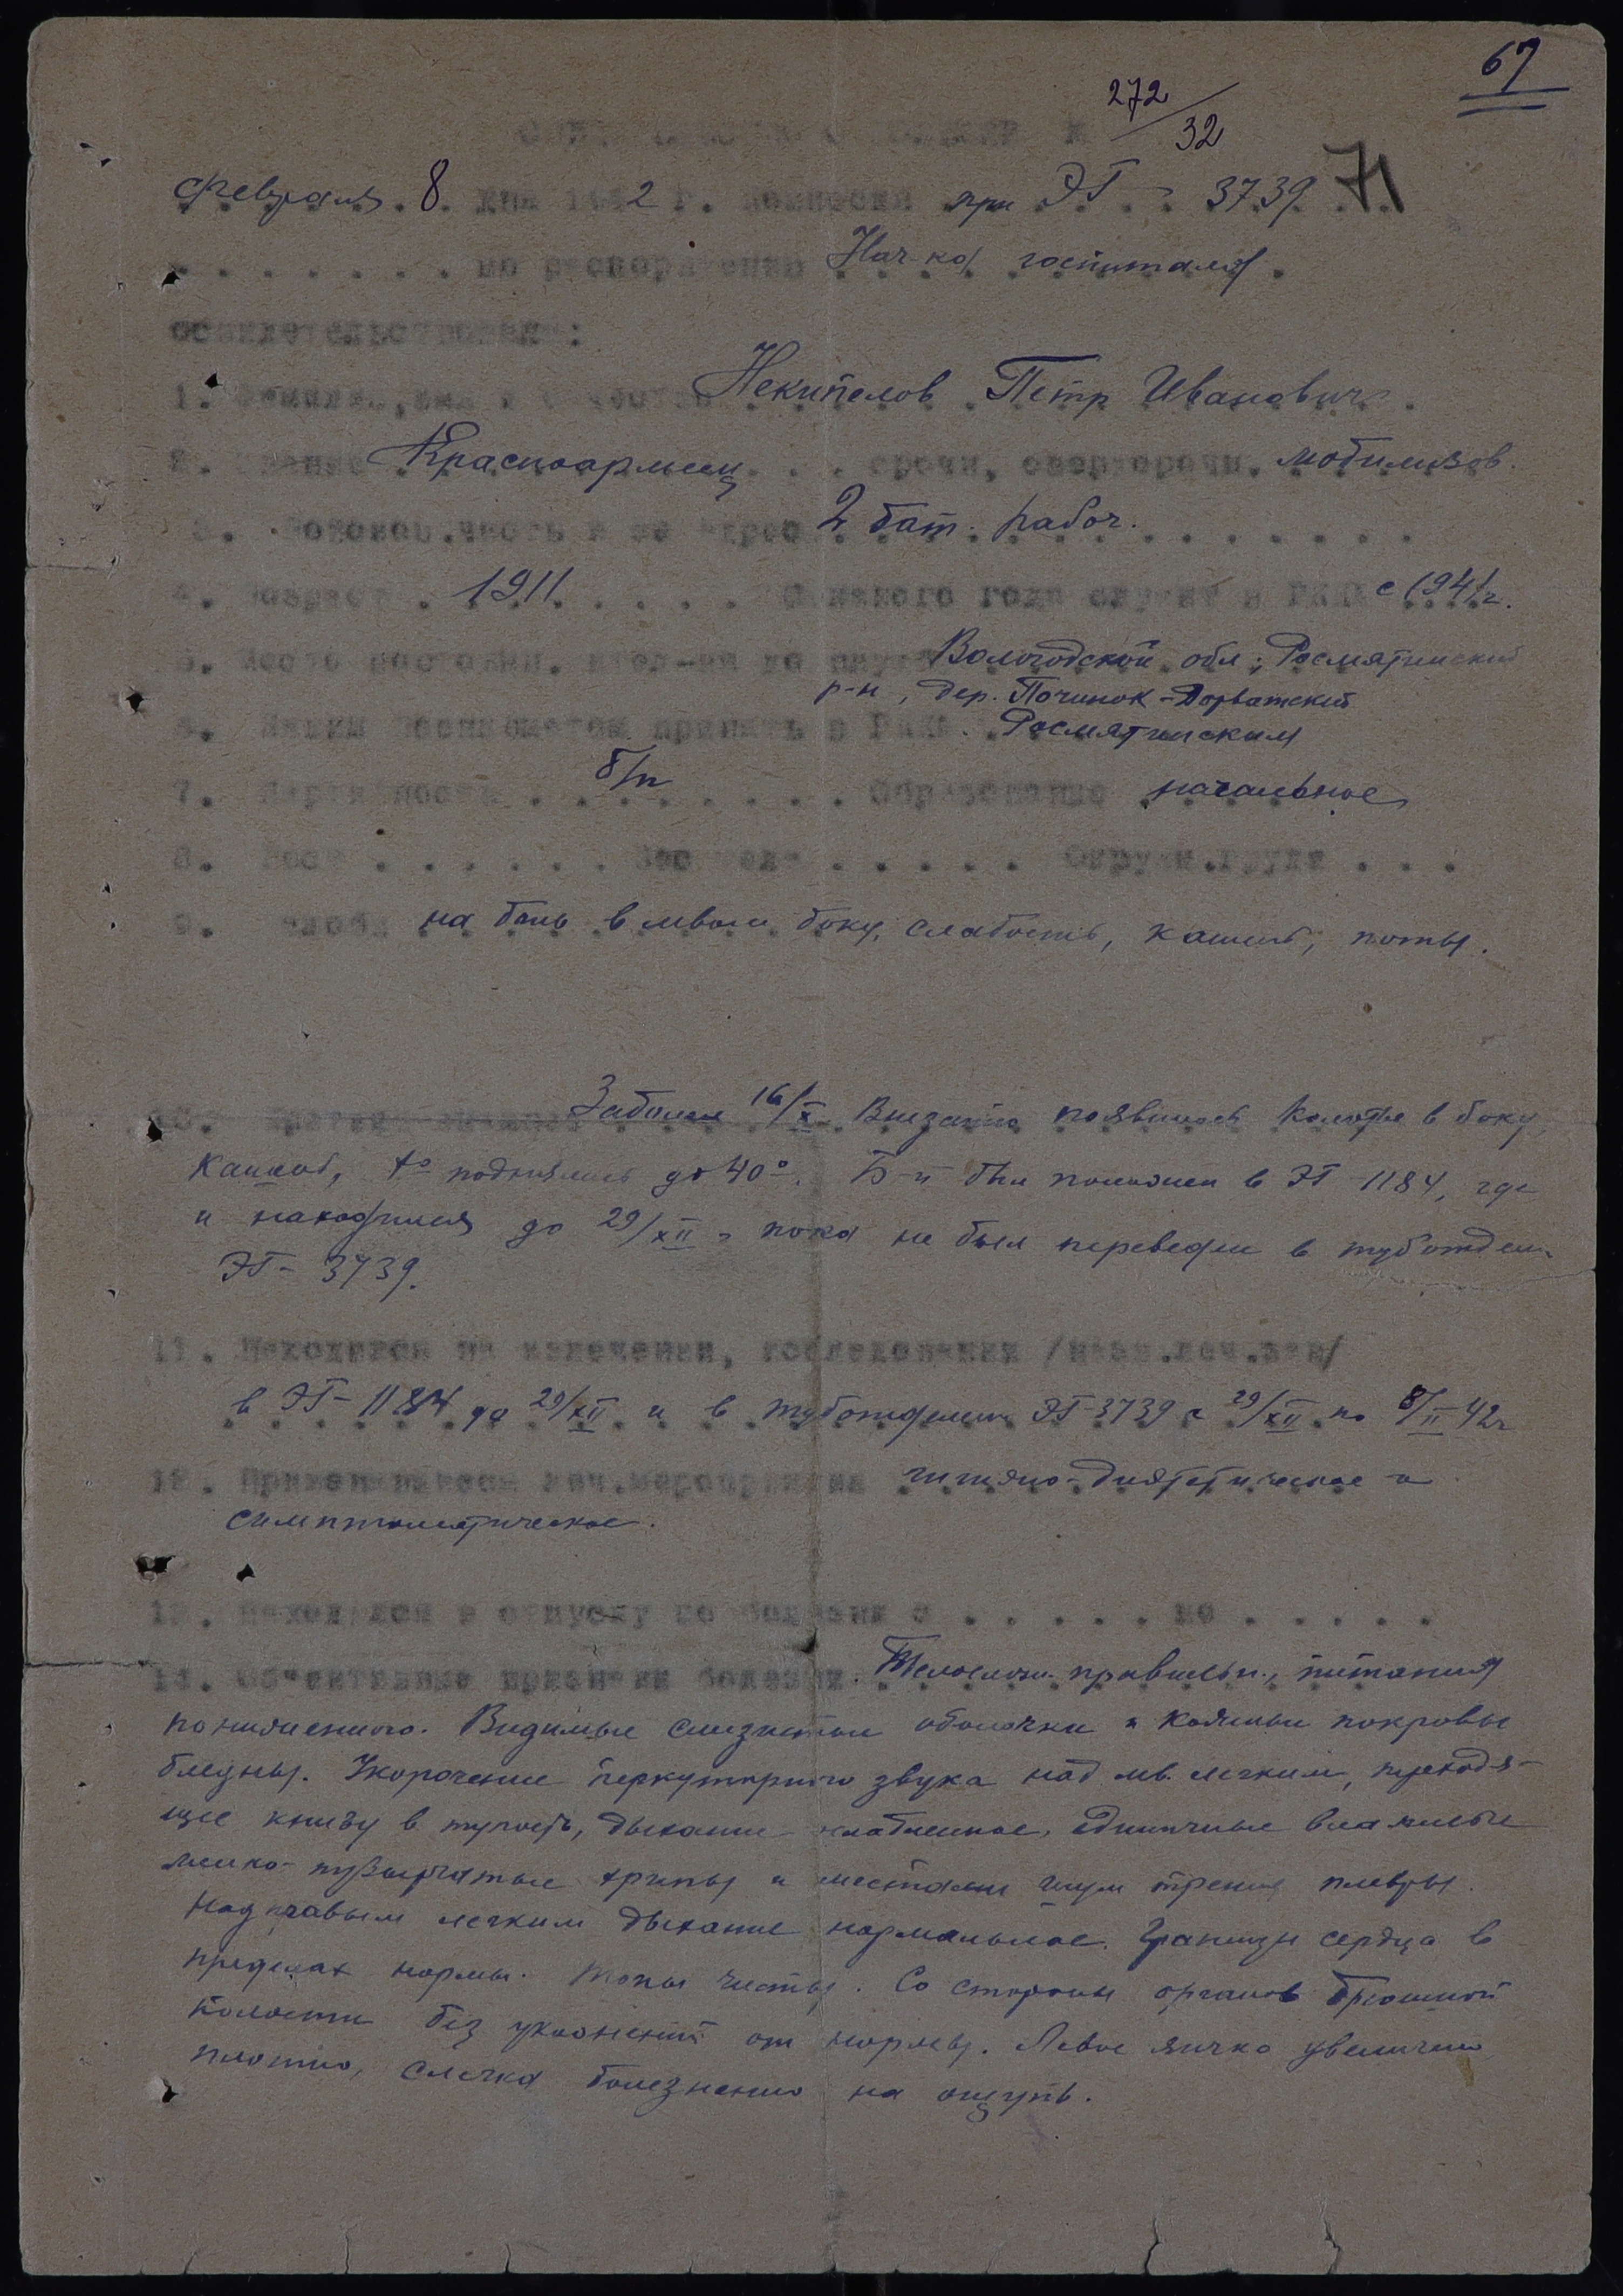 67
272/32
Февраля 8 дня 1942 г. комиссия при ЭГ - 3739 71
по распоряжению Нач-ка госпиталя
освидетельствован:
1. Фамилия, имя и отчество Некипелов Петр Иванович
2. Звание Красноармеец срочн, сверхсрочн. мобилизов.
3. Войсков.часть и ее адрес 2 бат. рабоч.
4. Возраст 1911 С какого года служит в РККА с 1941 г.
5. Место постоянн. жтел-ва до служ Вологодской обл; Рослятинский
р-н, дер. Починок-
6. Каким военкоматом принять в РККА Рослятинским
7. Партийность б/п Образование начальное
8. Рост Вес тела Окружн.груди
9. Жалоб на боль в левом боку, слабость, кашель, поты.
10. Заболел 16/X Внезапно появилось колотье в боку,
кашель, t° поднялась до 40°. Б-й был положен в ЭГ-1184, где
и находился до 29/XII, пока не был переведен в туботделен.
ЭГ-3739.
11. Находился на излечении, исследовании
в ЭГ-1184 до 29/XII и в туботделении ЭГ-3739 с 29/XII по 8/II 42г
12. Применявшееся леч.мероприятия гигиено-диэтетическое и
симптоматическое.
13. Находился в отпуску по болезни с . . . . . по . . . . .
14. Об'ективные признаки болезни. Телосложен. правильн., питания
пониженного. Видимые слизистые оболочки и кожные покровы
бледны. Укорочение перкуторного звука над лев. легким, переходя-
щее книзу в тупость, дыхание ослабленное, единичные влажные
мелко-пузырчатые хрипы и местами шум трения плевры.
Над правым легким дыхание нормальное. Границы сердца в
пределах нормы. Тоны чисты. Со стороны органов брюшной
полости без уклонений от нормы. Левое яичко увеличено
плотно, слегка болезненно на ощупь.